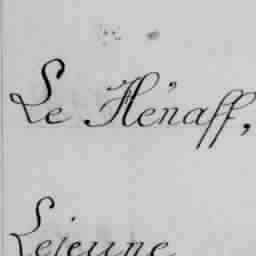 Le Hénaff,
Lejeune